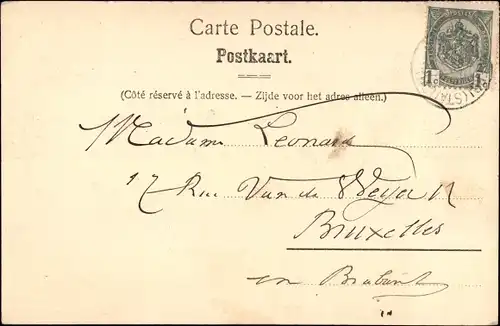 Carte Postale.
Postkaart.
(Côté réservé à l'adresse. — Zijde voor het adres alleen.)
Madame Leonard
17 Rue Van de Weyer
Bruxelles
en Brabant